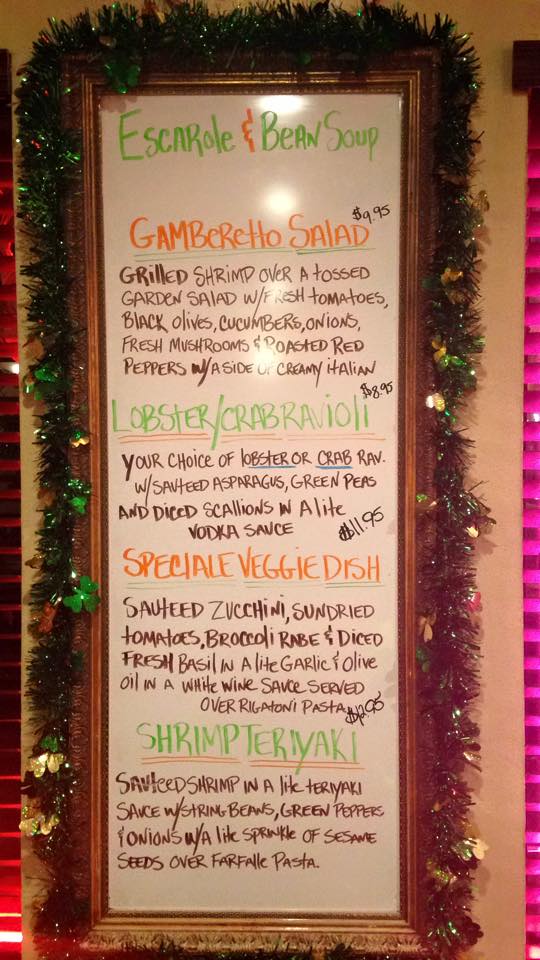 Escarole & Bean Soup
$9.95
Gamberetto Salad
Grilled Shrimp over a tossed
garden salad w/fresh tomatoes,
black olives, cucumbers, onions,
fresh mushrooms & roasted red
peppers w/a side of creamy italian
$8.95
Lobster/Crab Ravioli
Your choice of lobster or crab rav.
w/sauteed asparagus, green peas
and diced scallions in a lite
vodka sauce
$11.95
Speciale Veggie Dish
Sauteed zucchini, sundried
tomatoes, broccoli rabe & diced
fresh basil in a lite garlic & olive
oil in a white wine sauce served
over rigatoni pasta
$12.95
Shrimp Teriyaki
Sauteed shrimp in a lite teriyaki
sauce w/string beans, green peppers
& onions w/a lite sprinkle of sesame
seeds over farfalle pasta.